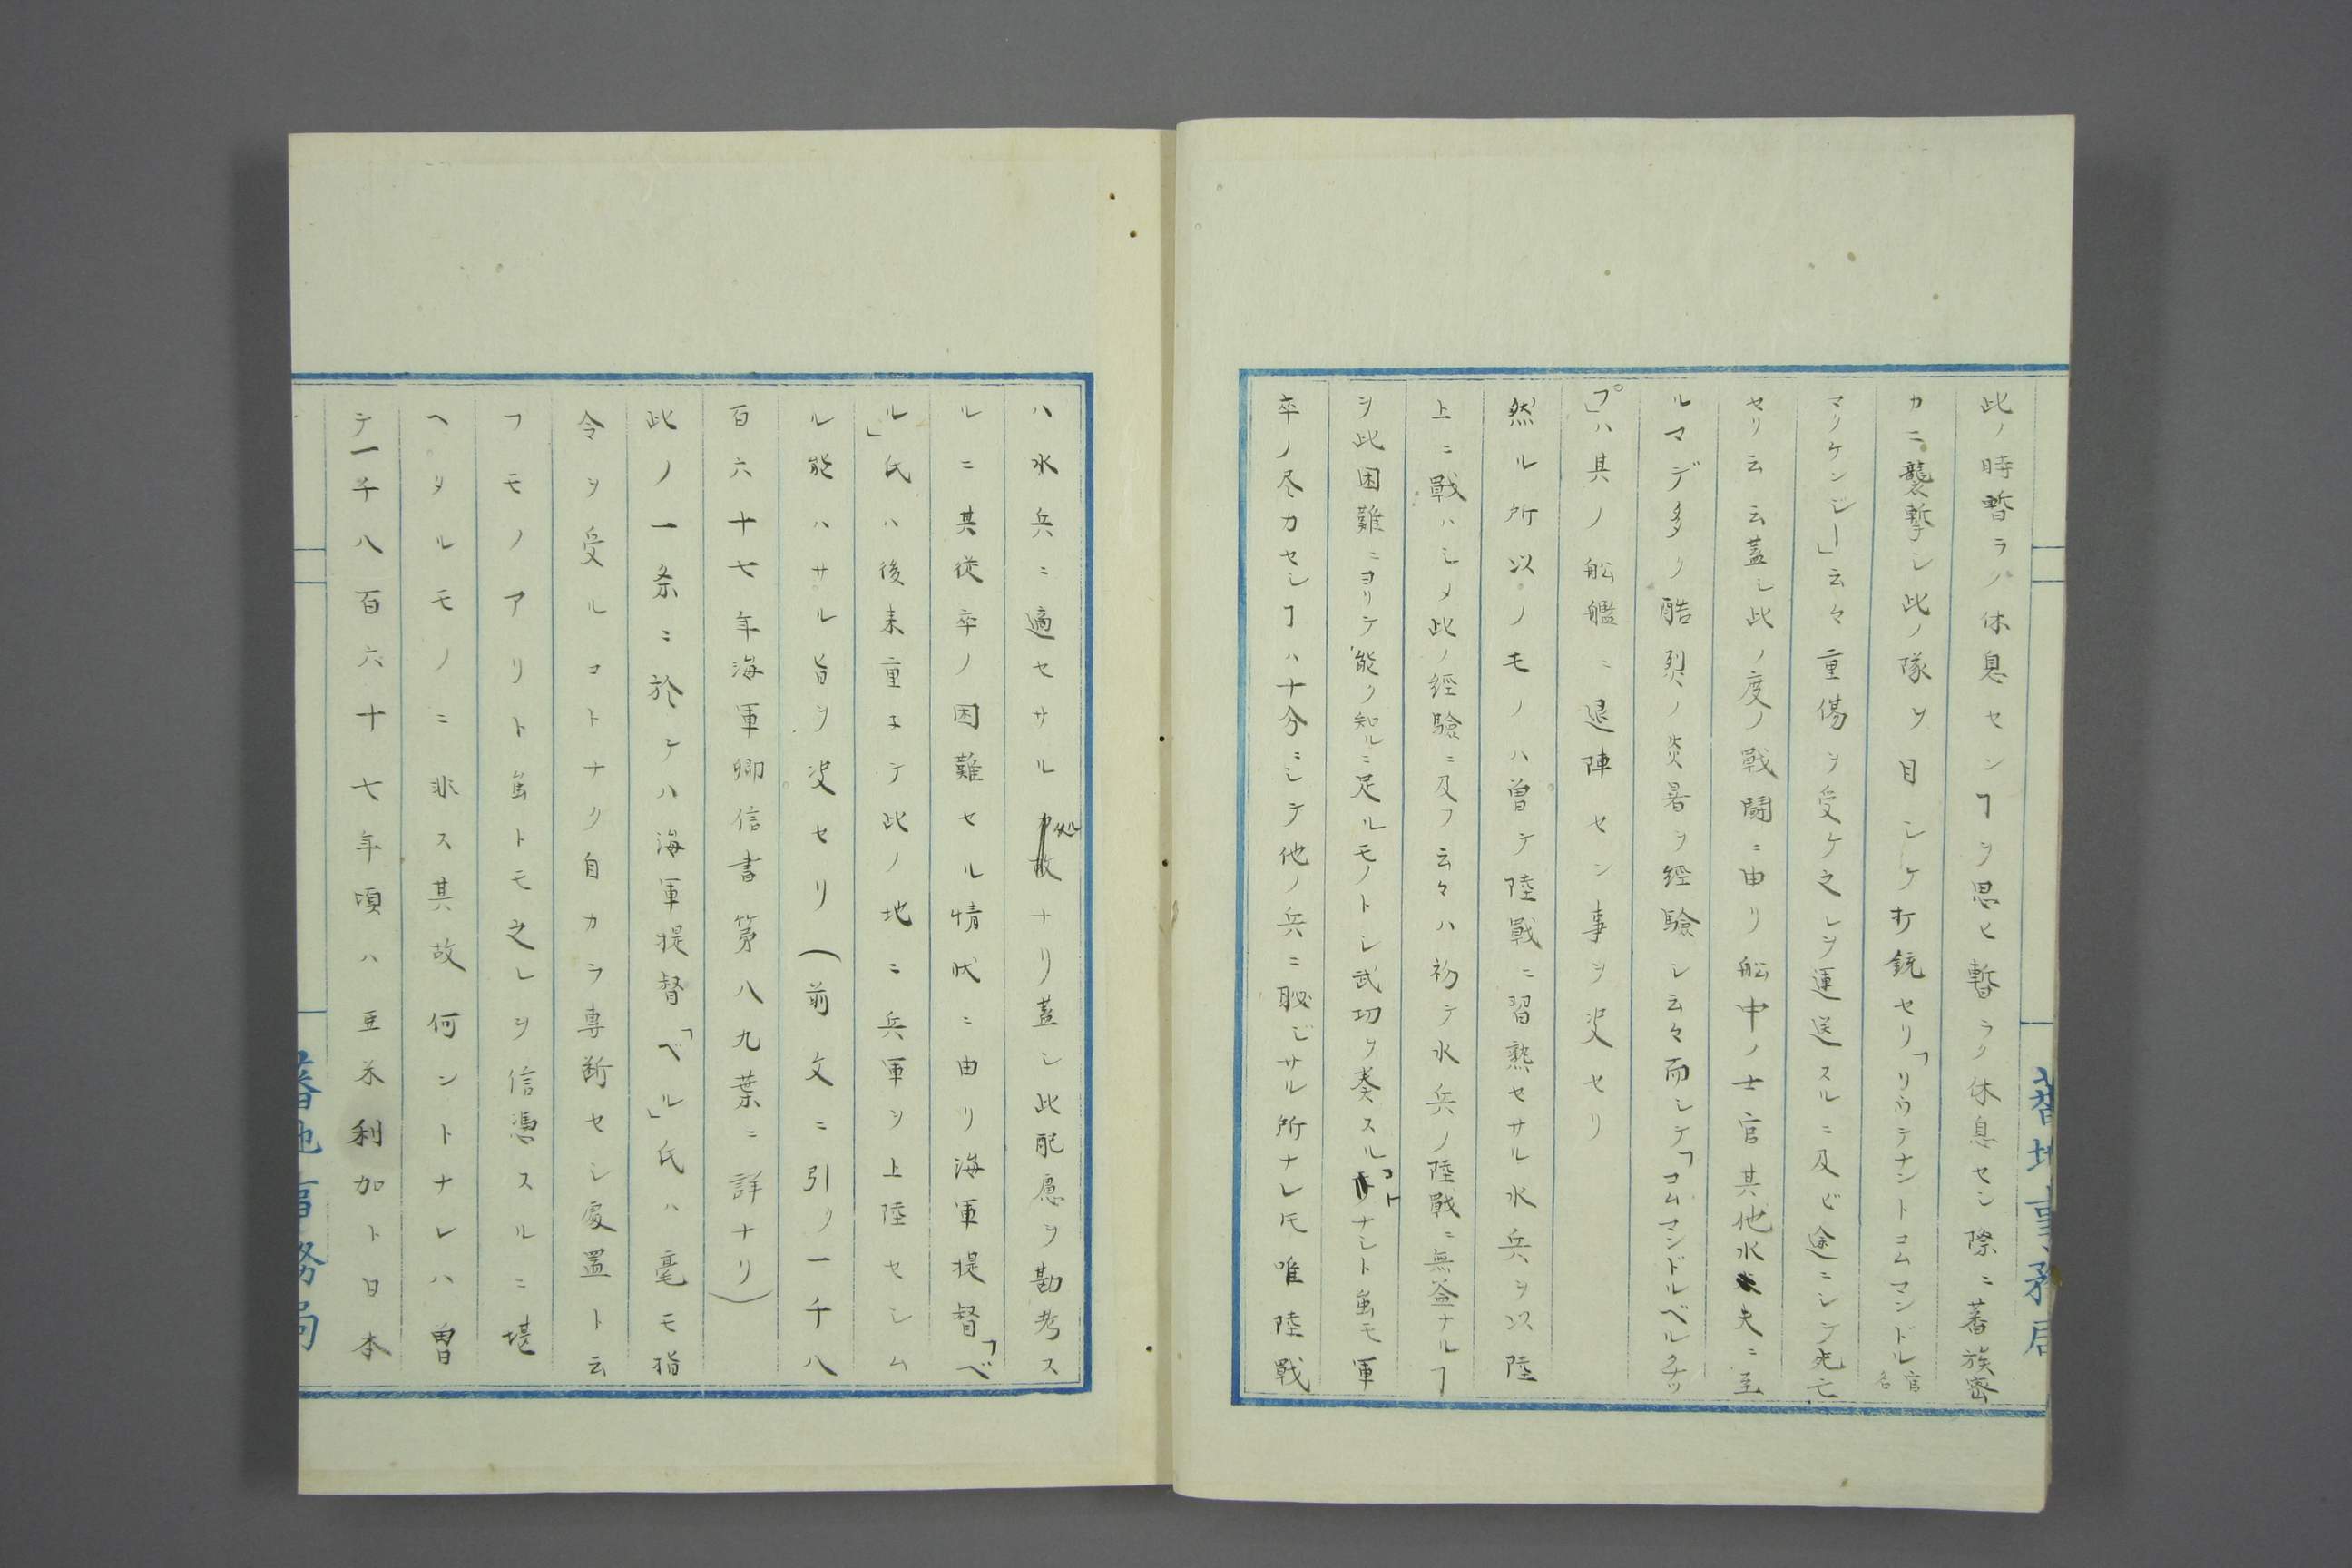 此ノ時暫ラク休息センヿヲ思ヒ暫ラク休息セシ際ニ蕃族密
カニ襲撃シ此ノ隊ヲ目シケ打銃セリ「リウテナントコムマンドル官名
マッケンジー」云々重傷ヲ受ケ之レヲ運送スルニ及ビ途ニシテ死亡
セリ云云蓋シ此ノ度ノ戰闘ニ由リ船中ノ士官其他水夫ニ至
ルマデ多ク酷烈ノ炎暑ヲ經驗シ云々而シテ「コムマンドルベルクナッ
プ」ハ其ノ船艦ニ退陣セン事ヲ决セリ
然ル所以ノモノハ曽テ陸戰ニ習熟セサル水兵ヲ以陸
上ニ戰ハシメ此ノ經驗ニ及フ云々ハ初テ水兵ノ陸戰ニ無益ナルヿ
ヲ此困難ニヨリテ能ク知ルニ足ルモノトシ武功ヲ奏スルコトナシト虽モ軍
卒ノ尽力セシヿハ十分ニシテ他ノ兵ニ恥ヂサル所ナレ𪜈唯陸戰
ハ水兵ニ適セサル処故ナリ蓋シ此配慮ヲ勘考ス
ルニ其従卒ノ困難セル情状ニ由リ海軍提督「ベ
ル」氏ハ後来重子テ此ノ地ニ兵軍ヲ上陸セシム
ル能ハサル旨ヲ决セリ(前文ニ引ク一千八
百六十七年海軍卿信書第八九葉ニ詳ナリ)
此ノ一条ニ於テハ海軍提督「ベル」氏ハ毫モ指
令ヲ受ルコトナク自カラ專断セシ處置ト云
フモノアリト虽トモ之レヲ信憑スルニ堪
ヘタルモノニ非ス其故何ントナレハ曽
テ一千八百六十七年頃ハ亜米利加ト日本
蕃地事務局
蕃地事務局